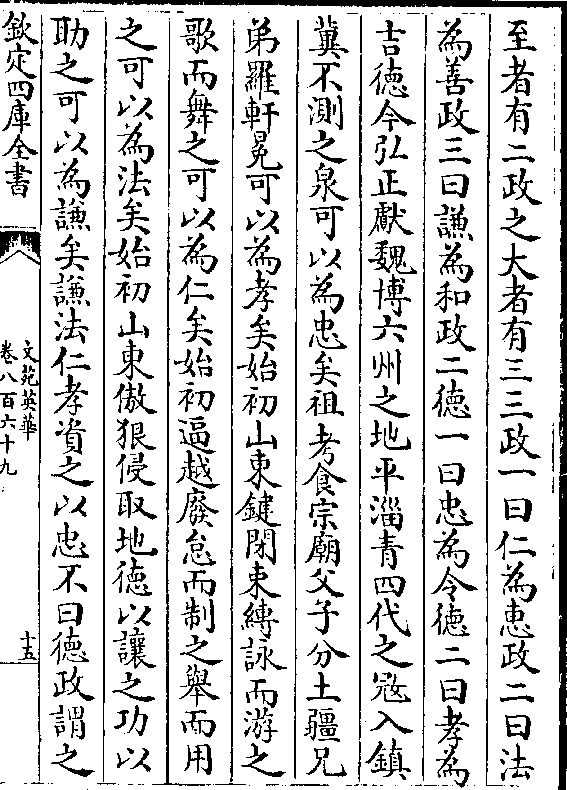 至者有二政之大者有三三政一曰仁為恵政二曰法
為善政三曰謙為和政二徳一曰忠為令徳二曰孝為
吉徳今弘正獻魏博六州之地平淄青四代之宼入鎮
冀不測之泉可以為忠矣祖考食宗廟父子分土疆兄
弟羅軒冕可以為孝矣始初山東鍵閉束縛詠而游之
歌而舞之可以為仁矣始初逼越廢怠而制之舉而用
之可以為法矣始初山東傲狠侵取地徳以讓之功以
助之可以為謙矣謙法仁孝資之以忠不曰徳政謂之
欽定四庫全書
文苑英華
卷八百六十九
十五